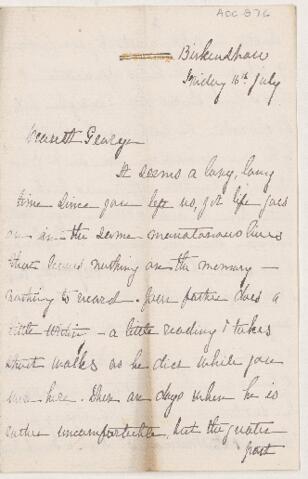 ADC-876
Birkendshaw
Friday 16th July
Dearest George
It seems a long, long
time since you left us, yet life goes
on in the same monotonous lines
that leaves nothing on the memory –
nothing to record. Your father does a
little writing – a little reading & takes
short walks as he did while you
were here. There are days when he is
rather uncomfortable, but the greater
part